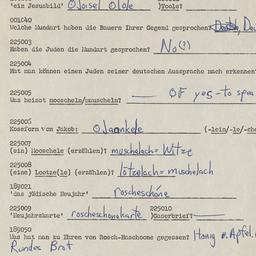 'ein Jesusbild' )Toole?
001040
Welche Mundart haben die Bauern Ihrer Gegend gesprochen?
225003
Haben die Juden die Mundart gesprochen? No(?)
225004
Hat man können einen Juden seiner deutschen Aussprache nach erkennen
225005
Was heisst mooscheln/muuscheln? OF yes - to spea
225006
Koseform von Jakob: (-lein/-le/-che
225007
(ein) Mooschele (erzählen)? muschelach = Witze
225008
(eine) Lootze(le) (erzählen)? lötzelach = muschelach
189021
'das jüdische Neujahr' roscheschöne
225009 225010
'Neujahrskarte' roscheschonokarte )Kaserbrief?
189050
Was hat man zu Ihren von Rosch-Haschoone gegessen? Honig u. Apfel.
Rundes Brot